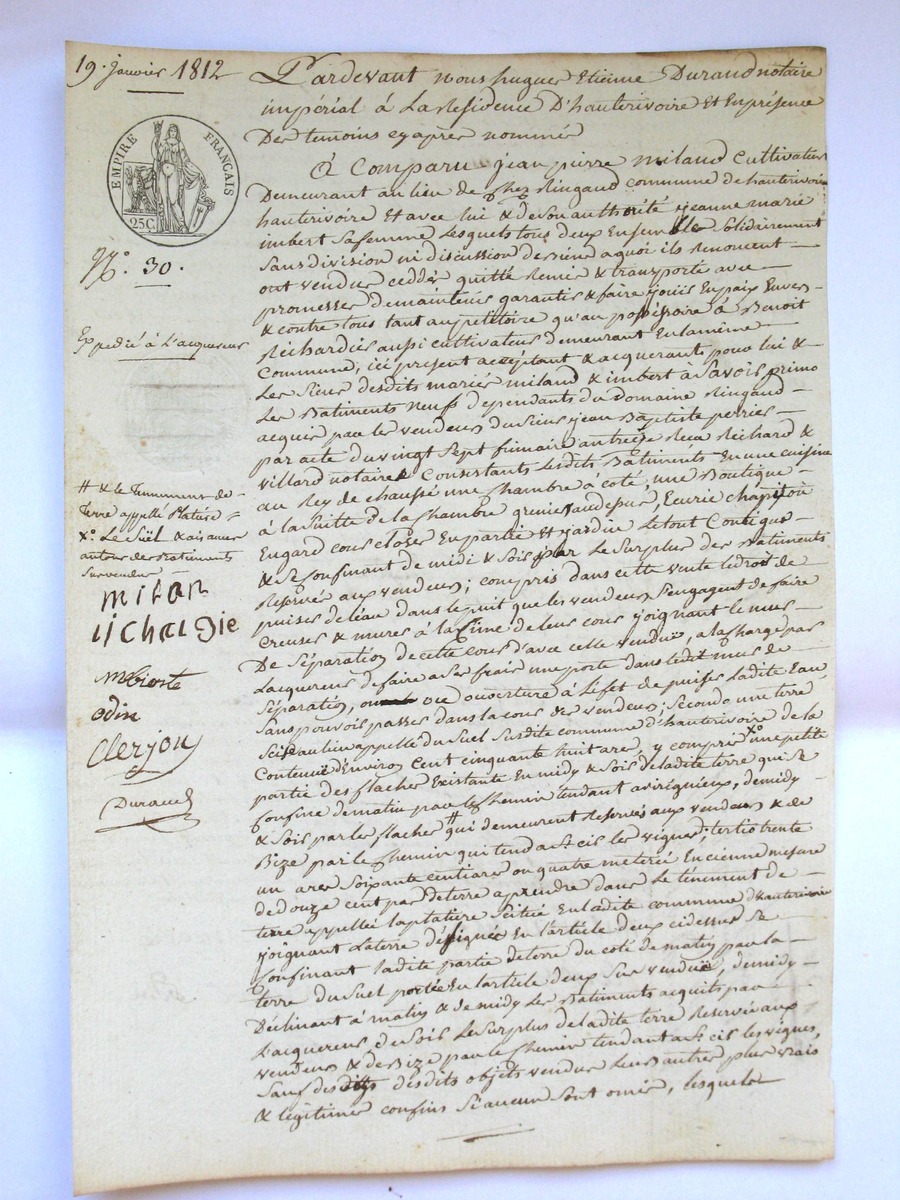 19. janvier 1812
EMPIRE FRANÇAIS
25C.
N.o 30.
Expedié à L'acquereur
# & le Tenement de
Terre appellé Platiere =
x.o Le Suël & aisances
autour des Batiments
survendus
milan
richardie
odin
Clerjon
Durand
Pardevant nous hugues Etienne Durand notaire
impérial à La Residence D'hauterivoire Et En présence
Des temoins cy après nommés
à Comparu jean pierre miland Cultivateur
Demeurant au lieu de chez Ringaud commune de hauterivoire
hauterivoire Et avec lui & de son authorité jeanne marie
imbert sa femme Lesquels tous deux Ensemble Solidairement
Sans division ni discussion de biens a quoi ils renoncent
ont vendus ceddés quitté Remis & transporté avec
promesse de maintenir garantir & faire jouir En paix Envers
& contre tous tant au petitoire qu'au possessoire à Benoit
Richardies aussi cultivateur demeurant En la même
Commune, ici present acceptant & acquerant pour lui &
Les Siens desdits mariés miland & imbert à Savoir primo
Les Batiments neufs dependants du Domaine Ringaud
acquis par les vendeurs du Sieur jean Baptiste perrier
par acte du vingt Sept frimaire an treize Reçu Richard &
villard notaires Consistants Lesdits Batiments En une cuisine
au Rez de chaussé une chambre a coté, une Boutique
à la Suitte de la chambre grenier au dessus, Ecurie chapit ou
Engard cour closes En partie Et jardin Le tout Contigus
& Se Confinant de midi & Soir par Le Surplus des Batiments
Reservés aux vendeurs; compris dans cette vente le droit de
puiser de l'eau dans le puit que les vendeurs S'engagent de faire
Creuser & murer à la Cime de leur cour joignant le mur
De Séparation de cette cour d'avec celle venduë, a la charge par
L'acquereur de faire a Ses frais une porte dans ledit mur de
Séparation, ou ouverture à L'efet de puiser Ladite Eau
Sans pouvoir passer dans la cour des vendeurs; Secondo une terre
Scise au lieu appellé du Suel Susdite commune d'hauterivoire de la
Contenuë d'Environ Cent cinquante huit ares, y compris x.o une petite
partie des flaches Existante En midy & Soir de ladite terre qui Se
Confine de matin par le Chemin tendant a virigneux, de midy
& Soir par les flaches # qui demeurent Reservés aux vendeurs & de
Bize par le Chemin qui tend a St. cil les vignes; tertio trente
un ares Soixante centiares ou quatre meterée Encienne mesure
de douze cent pas de terre a prendre dans Le ténement de
terre appellée la platiere Scitué En ladite commune d'hauterivoire
joignant La terre désignée En l'article deux cidessus Se
Confinant ladite partie de terre du coté de matin par la
terre du Suel portée En l'article deux Sur venduë, de midy
Déclinant à matin & de midy Les Batiments acquits par
L'acquereur de Soir Le Surplus de ladite terre Reservée aux
vendeurs & de Bize par le Chemin tendant a St. cil les vignes,
Sauf des desdits objets vendus Leurs autres plus vrais
& legitimes confins Si aucun Sont omis, lesquels